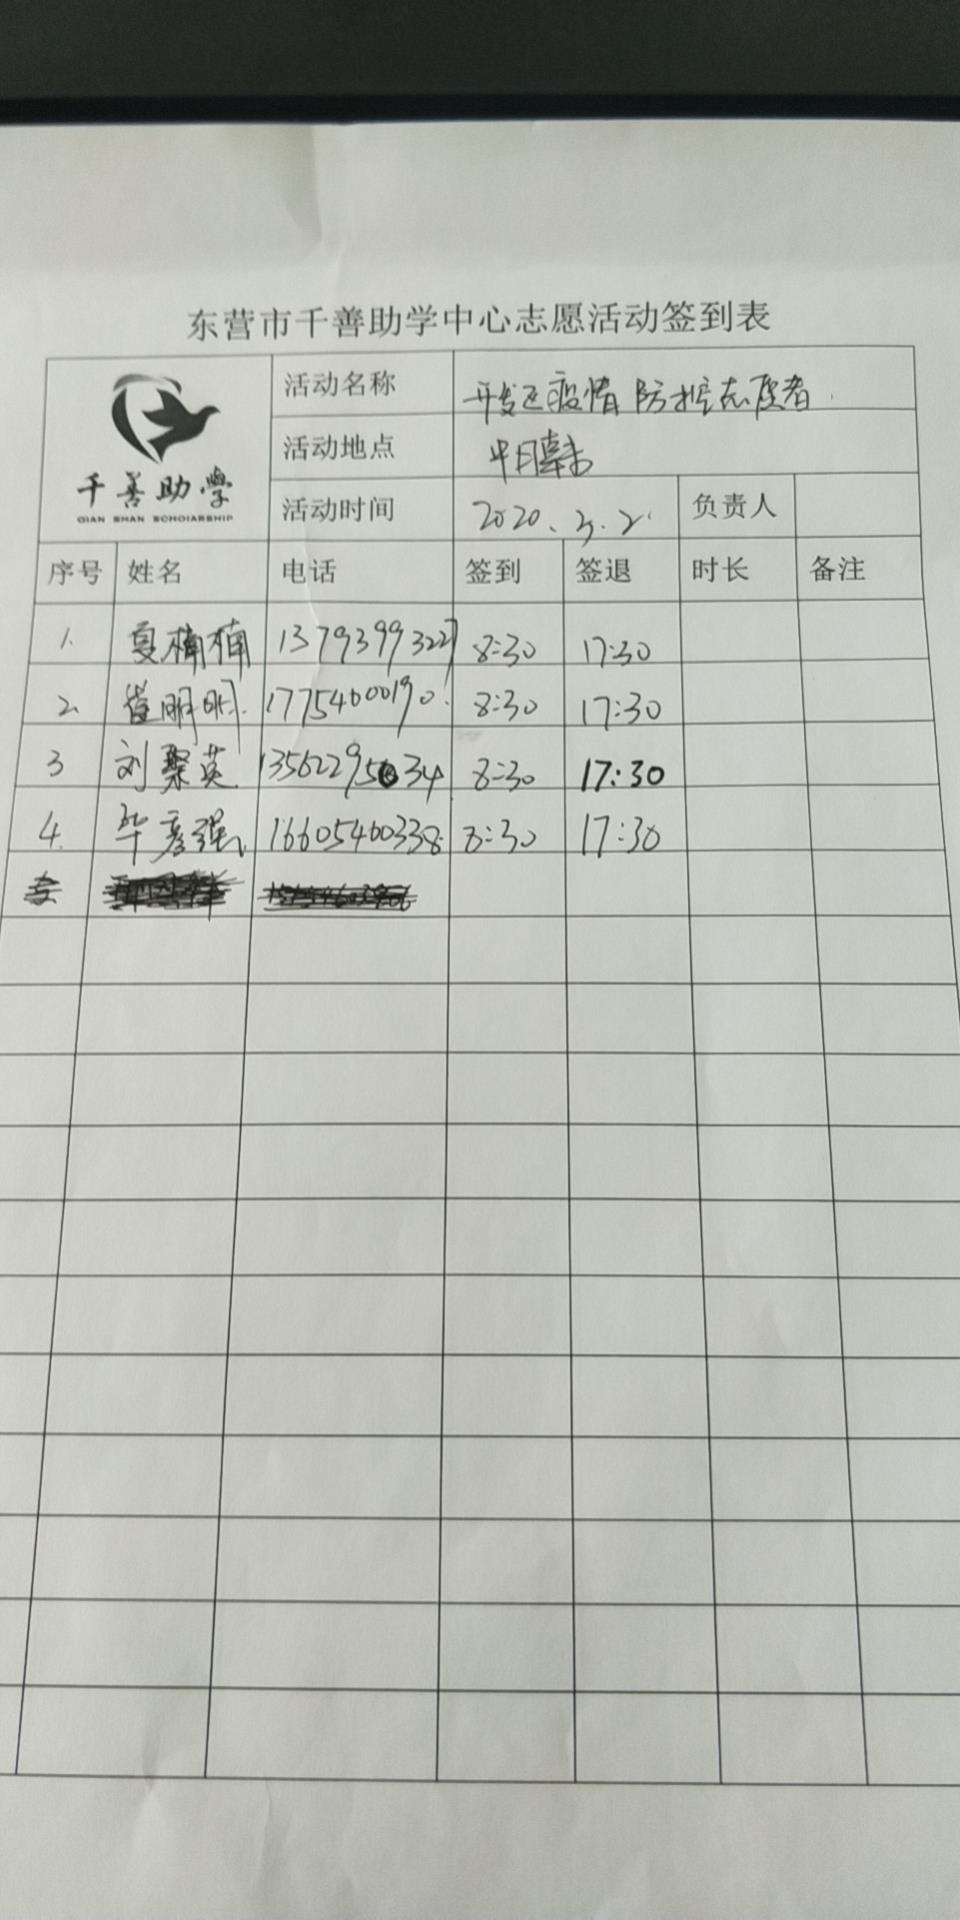 东营市千善助学中心志愿活动签到表
千善助学
QIAN SHAN SCHOIARSHIP
活动名称 开发区疫情防控志愿者
活动地点
活动时间 2020.3.2. 负责人
序号 姓名 电话 签到 签退 时长 备注
1. 夏楠楠 13793993227 8:30 17:30
2. 崔明明 17754600190. 8:30 17:30
3 刘聚英 13562295034 8:30 17:30
4. 毕彦强 16605460338 8:30 17:30